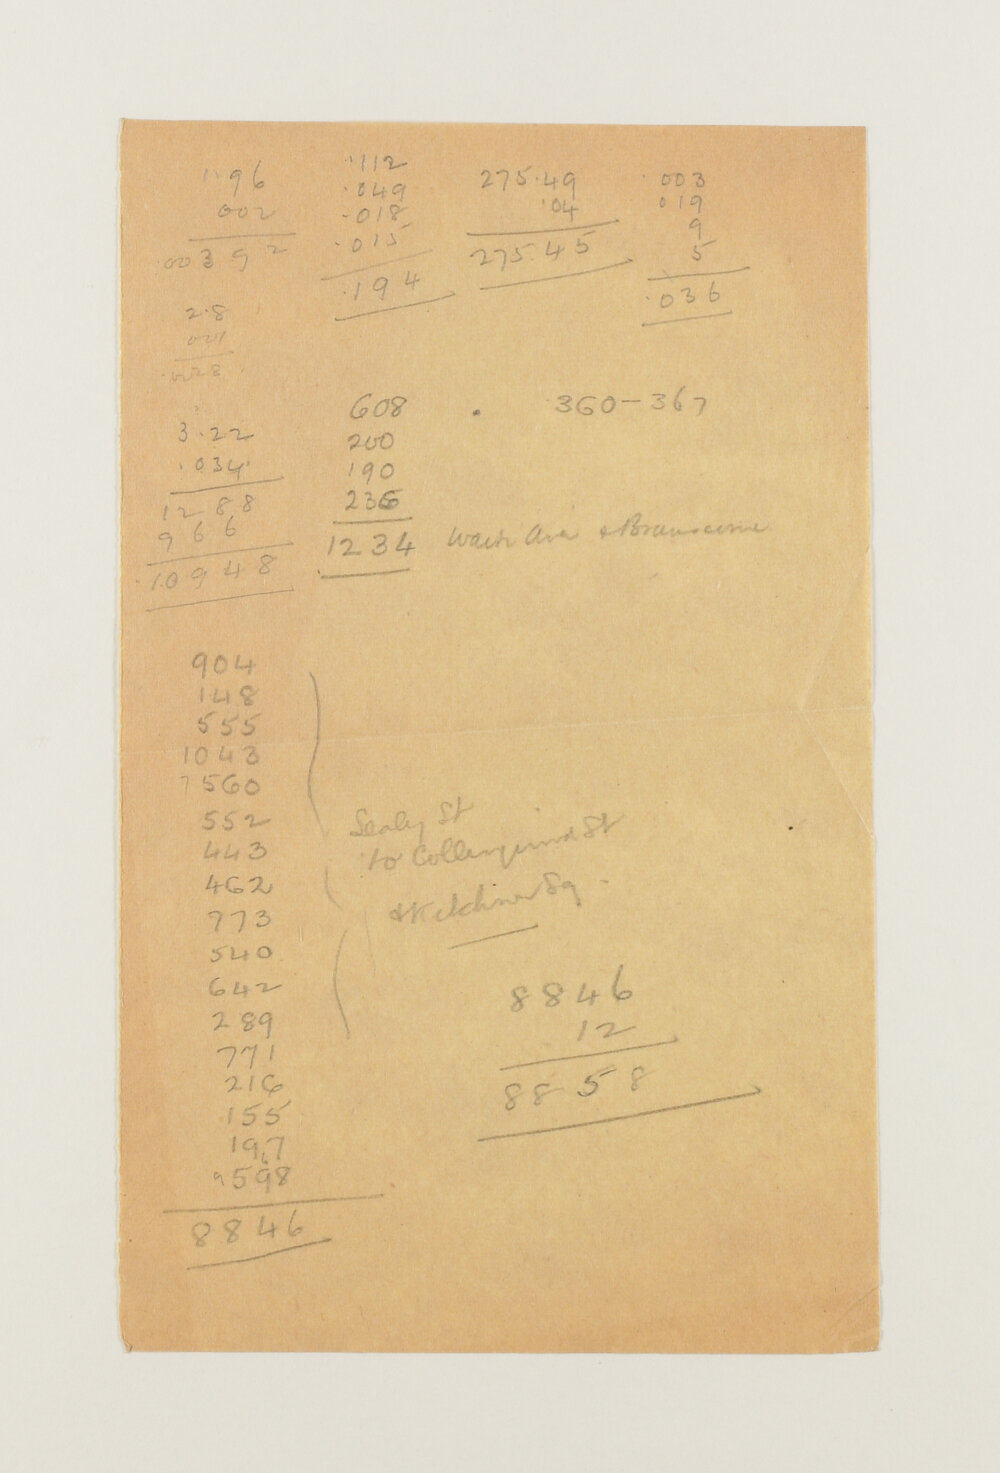 1.96
002
.00392
.112
.049
.018
.015
.194
275.49
.04
275.45
.003
019
9
5
.036
2.8
608
200
190
236
1234
360-367
3.22
.034
1288
966
.10948
904
148
555
1043
7560
552
443
462
773
540
642
289
771
216
155
197
598
8846
Sealey St
to Collingwood St
& Kitchener Sq.
8846
12
8858